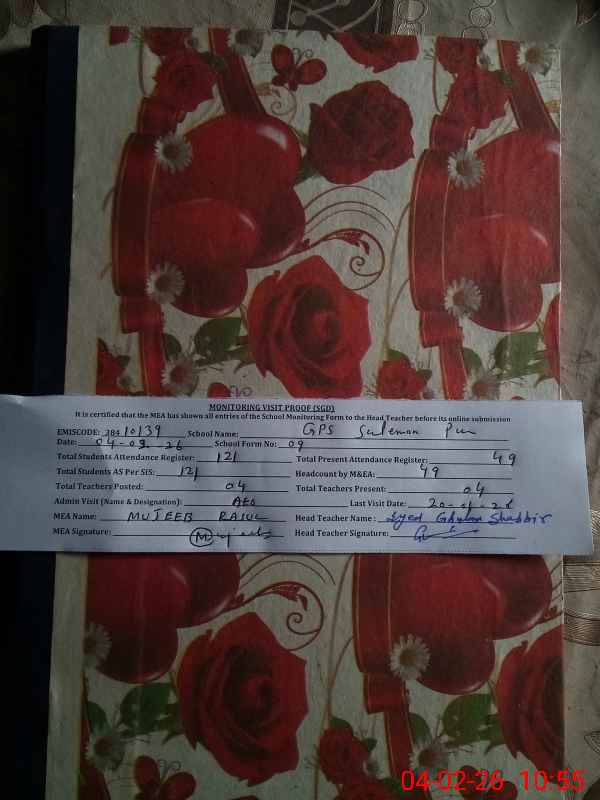 MONITORING VISIT PROOF (SGD)
It is certified that the MEA has shown all entries of the School Monitoring Form to the Head Teacher before its online submission
EMISCODE: 384 10139 School Name: GPS Suleman Pur
Date: 04-02-26 School Form No: 09
Total Students Attendance Register: 121 Total Present Attendance Register: 49
Total Students AS Per SIS: 121 Headcount by M&EA: 49
Total Teachers Posted: 04 Total Teachers Present: 04
Admin Visit (Name & Designation): AEO Last Visit Date: 20-01-26
MEA Name: MUJEEB Head Teacher Name: Syed Ghulam Shabbir
MEA Signature: Head Teacher Signature:
04-02-26 10:55